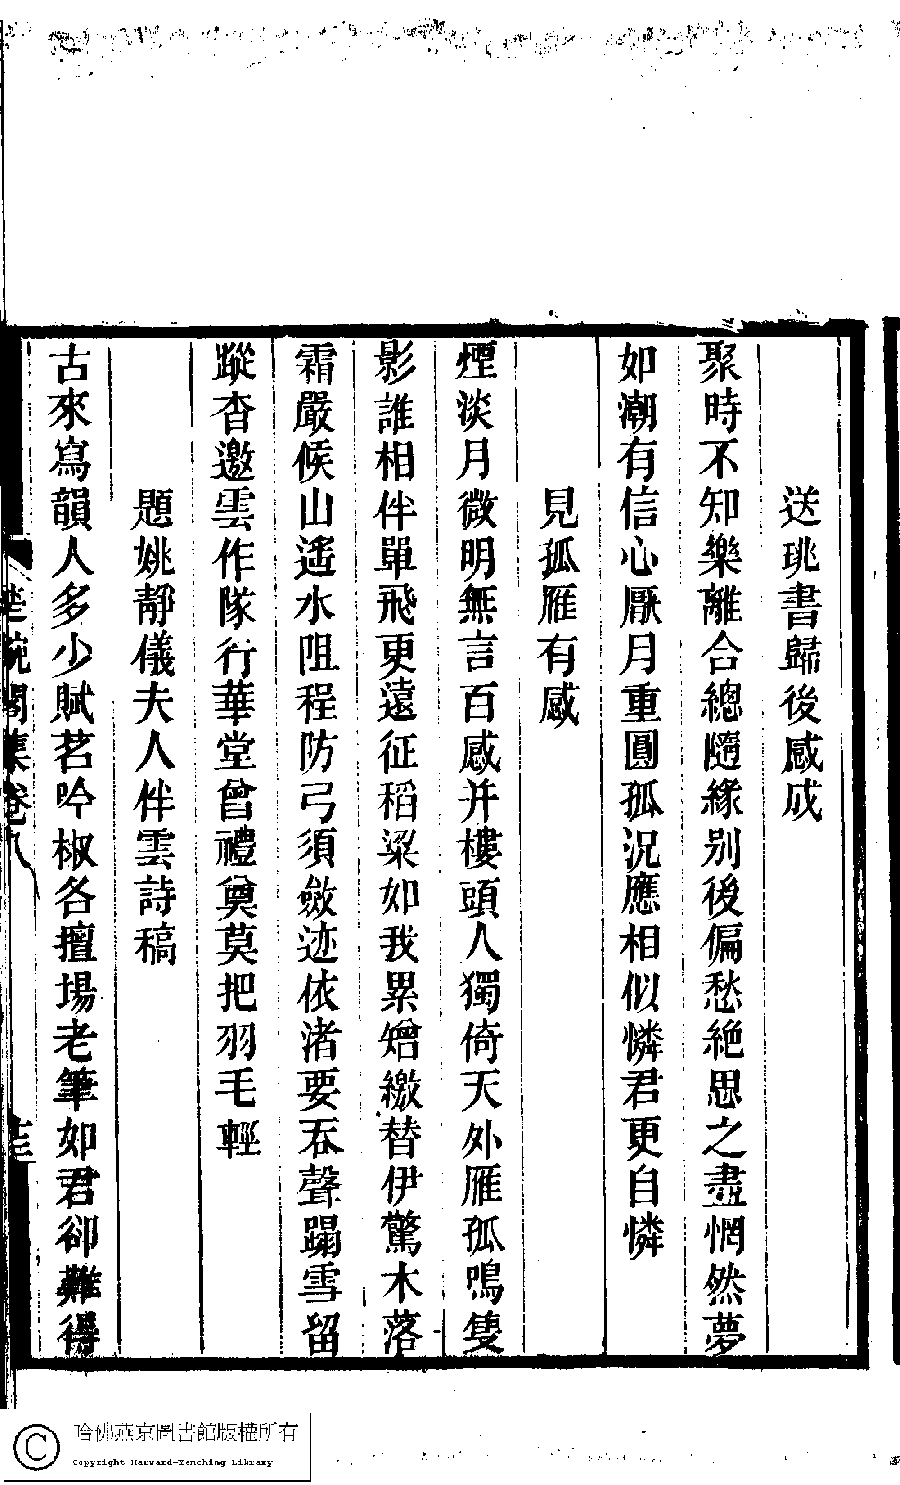 送珧書歸後感成
聚時不知樂離合總隨緣别後偏愁絶思之盡惘然夢
如潮有信心厭月重圓孤況應相似憐君更自憐
見孤雁有感
煙淡月微明無言百感并樓頭人獨倚天外雁孤鳴隻
影誰相伴單飛更遠征稻粱如我累矰繳替伊驚木落
霜嚴候山遙水阻程防弓須斂迹依渚要吞聲蹋雪留
蹤杳邀雲作隊行華堂曾禮奠莫把羽毛輕
題姚靜儀夫人伴雲詩稿
古來寫韻人多少賦茗吟椒各擅場老筆如君卻難得
閣集卷八
哈佛燕京圖書館版權所有
Copyright Harvard-Yenching Library